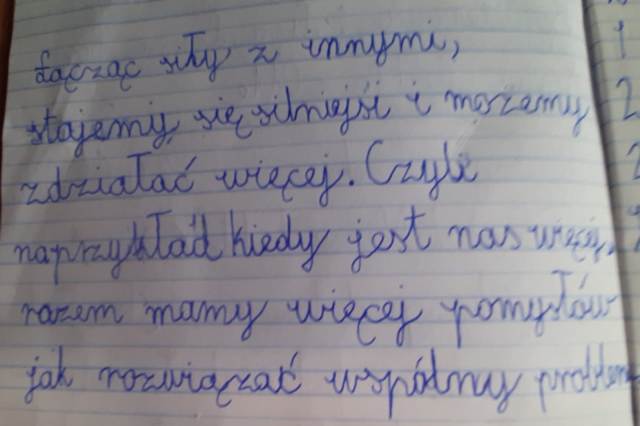 Łącząc siły z innymi,
stajemy się silniejsi i możemy
zdziałać więcej. Czyli
naprzykład kiedy jest nas więcej,
razem mamy więcej pomysłów
jak rozwiązać wspólny problem